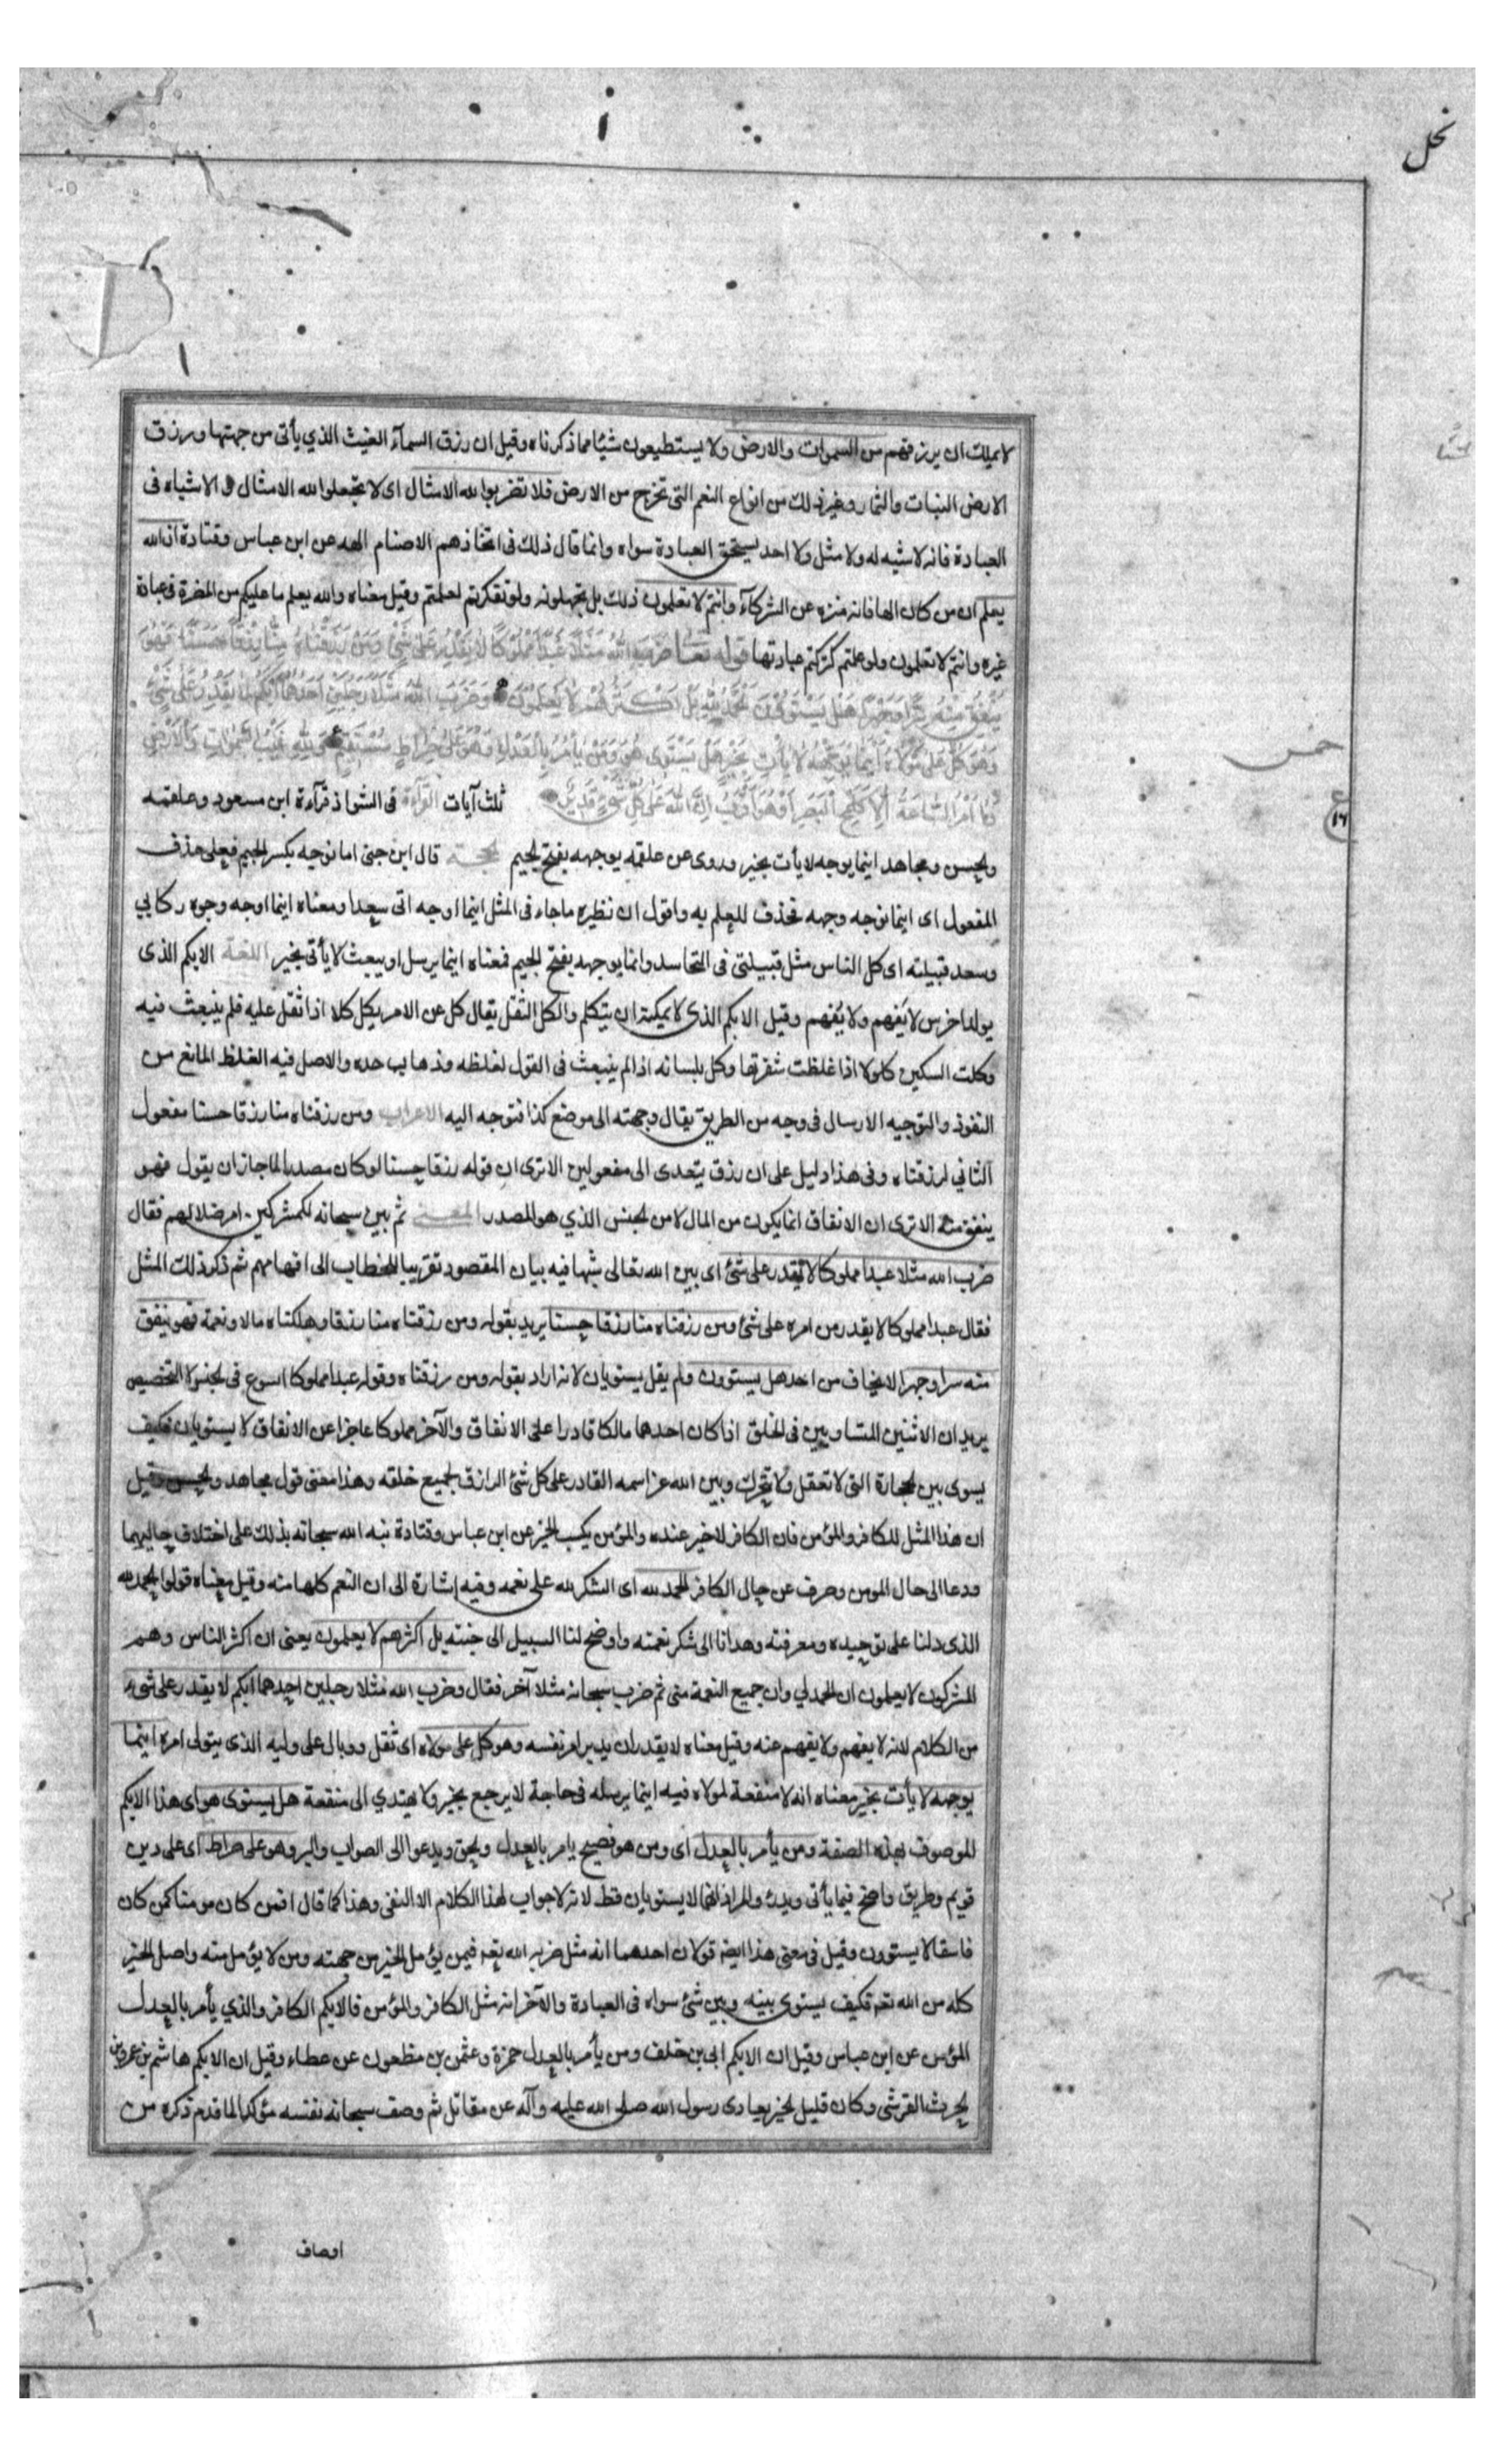 نحل
لا يملك ان يرزقهم من السموات والارض ولا يستطيعون شيئا مما ذكرناه وقيل ان رزق السمآء الغيث الذي يأتى من جهتها ورزق
الارض النبات والثمار وغير ذلك من انواع النعم التى تخرج من الارض فلا تضربوا لله الامثال اى لا تجعلوا لله الامثال و الاشباه فى
العبادة فانه لا شبه له ولا مثل ولا احد يستحق العبادة سواه وانما قال ذلك فى اتخاذهم الاصنام الهه عن ابن عباس وقتادة ان الله
يعلم ان من كان الها فانه منزه عن الشركآء وانتم لا تعلمون ذلك بل تجهلونه ولو تفكرتم لعلمتم وقيل معناه والله يعلم ما عليكم من المضرة فى عبادة
غيره وانتم لا تعلمون ولو علمتم لتركتم عبادتها قوله تعالى ضَرَبَ اللّٰهُ مَثَلًا عَبْدًا مَمْلُوكًا لَا يَقْدِرُ عَلَى شَىْءٍ وَمَنْ رَزَقْنَاهُ مِنَّا رِزْقًا حَسَنًا فَهُوَ
يُنْفِقُ مِنْهُ سِرًّا وَجَهْرًا هَلْ يَسْتَوُونَ الْحَمْدُ لِلّٰهِ بَلْ اَكْثَرُهُمْ لَا يَعْلَمُونَ وَضَرَبَ اللّٰهُ مَثَلًا رَجُلَيْنِ اَحَدُهُمَا اَبْكَمُ لَا يَقْدِرُ عَلَى شَىْءٍ
وَهُوَ كَلٌّ عَلَى مَوْلَاهُ اَيْنَمَا يُوَجِّهْهُ لَا يَأْتِ بِخَيْرٍ هَلْ يَسْتَوِى هُوَ وَمَنْ يَأْمُرُ بِالْعَدْلِ وَهُوَ عَلَى صِرَاطٍ مُسْتَقِيمٍ وَلِلّٰهِ غَيْبُ السَّمٰوَاتِ وَالْاَرْضِ
وَمَا اَمْرُ السَّاعَةِ اِلَّا كَلَمْحِ الْبَصَرِ اَوْ هُوَ اَقْرَبُ اِنَّ اللّٰهَ عَلَى كُلِّ شَىْءٍ قَدِيرٌ ثلث آيات القرآءة فى الشواذ قرآءة ابن مسعود وعلقمه
والحسن ومجاهد اينما يوجه لا يأت بخير وروى عن علقمه يوجهه بفتح الجيم الحجة قال ابن جنى اما توجه بكسر الجيم فعلى حذف
المفعول اى اينما توجه وجهه فحذف للعلم به واقول ان نظيره ما جاء فى المثل اينما اوجه التى سعدا ومعناه اينما اوجه وجوه ركابي
وسعد قبيلته اى كل الناس مثل قبيلتى فى التحاسد وانما يوجهه بفتح الجيم فمعناه اينما يرسل او يبعث لا يأتى بخير اللغة الابكم الذى
يولد اخرس لا يَفهم ولا يُفهم وقيل الابكم الذى لا يمكنه ان يتكلم والكل الثقل يقال كل عن الامر يكل كلا اذا ثقل عليه فلم ينبعث فيه
وكلت السكين كلولا اذا غلظت شفرتها وكل بلسانه اذا لم ينبعث فى القول لغلظه وذهاب حده والاصل فيه الغلظ المانع من
النفوذ والتوجيه الارسال فى وجه من الطريق يقال وجهته الى موضع كذا فتوجه اليه الاعراب ومن رزقناه منا رزقا حسنا مفعول
الثاني لرزقناه وفى هذا دليل على ان رزق يتعدى الى مفعولين الا ترى ان قوله رزقا حسنا لو كان مصدرا لما جاز ان يقول فهو
ينفق منه الا ترى ان الانفاق انما يكون من المال لا من الجنس الذي هو المصدر المعنى ثم بين سبحانه للمشركين امر ضلالهم فقال
ضرب الله مثلا عبدا مملوكا لا يقدر على شئ اى بين الله تعالى شبها فيه بيان المقصود تقريبا للخطاب الى افهامهم ثم ذكر ذلك المثل
فقال عبدا مملوكا لا يقدر من امره على شئ ومن رزقناه منا رزقا حسنا يريد بقوله ومن رزقناه منا رزقا وملكناه مالا ونعمة فهو ينفق
منه سرا وجهرا لا يخاف من احد هل يستوون ولم يقل يستويان لانه اراد بقوله ومن رزقناه وقوله عبدا مملوكا الشيوع فى الجنس لا التخصيص
يريد ان الاثنين المتساويين فى الخلق اذا كان احدهما مالكا قادرا على الانفاق والآخر مملوكا عاجزا عن الانفاق لا يستويان فكيف
يسوى بين الحجارة التى لا تعقل ولا تتحرك وبين الله عز اسمه القادر على كل شئ الرازق لجميع خلقه وهذا معنى قول مجاهد والحسن وقيل
ان هذا المثل للكافر والمؤمن فان الكافر لا خير عنده والمؤمن يكسب الخير عن ابن عباس وقتادة نبه الله سبحانه بذلك على اختلاف حاليهما
ودعا الى حال المومن وصرف عن حال الكافر الحمد لله اى الشكر لله على نعمه وفيه اشارة الى ان النعم كلها منه وقيل معناه قولوا الحمد لله
الذى دلنا على توحيده ومعرفته وهدانا الى شكر نعمته واوضح لنا السبيل الى جنته بل اكثرهم لا يعلمون يعنى ان اكثر الناس وهم
المشركون لا يعلمون ان الحمد لي وان جميع النعمة منى ثم ضرب سبحانه مثلا آخر فقال وضرب الله مثلا رجلين احدهما ابكم لا يقدر على شىء
من الكلام لانه لا يفهم ولا يفهم عنه وقيل معناه لا يقدر ان يدبر امر نفسه وهو كل على مولاه اى ثقل ووبال على وليه الذى يتولى امره اينما
يوجهه لا يأت بخير معناه انه لا منفعة لمولاه فيه اينما يرسله فى حاجة لا يرجع بخير ولا يهتدي الى منفعة هل يستوى هو اى هذا الابكم
الموصوف بهذه الصفة ومن يأمر بالعدل اى ومن هو فصيح يامر بالعدل والحق ويدعوا الى الصواب والبر وهو على صراط اى على دين
قويم وطريق واضح فيما يأتى ويذر والمراد انهما لا يستويان قط لانه لا جواب لهذا الكلام الا النفى وهذا كما قال افمن كان مومنا كمن كان
فاسقا لا يستوون وقيل فى معنى هذا ايضا قولان احدهما انه مثل ضربه الله تعه فيمن يؤمل الخير من جهته ومن لا يؤمل منه واصل الخير
كله من الله تعه فكيف يستوى بينه وبين شئ سواه فى العبادة والآخر انه مثل الكافر والمؤمن فالابكم الكافر والذي يأمر بالعدل
المؤمن عن ابن عباس وقيل ان الابكم ابى بن خلف ومن يأمر بالعدل حمزة وعثمن بن مظعون عن عطاء وقيل ان الابكم هاشم بن عمرو بن
الحرث القرشى وكان قليل الخير يعادى رسول الله صلى الله عليه وآله عن مقاتل ثم وصف سبحانه نفسه مؤكدا لما قدم ذكره من
اوصاف